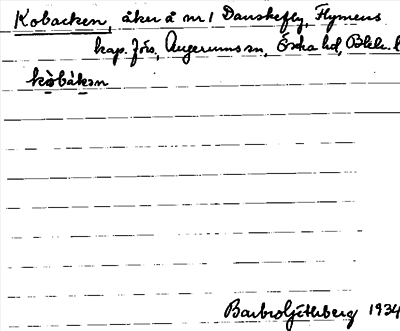 Kobacken, åker å nr 1 Danskefly, Flymens
kap. förs, Augerums sn, Östra hd, Blek. l
kòbákən
Barbro Ljüthberg 1934